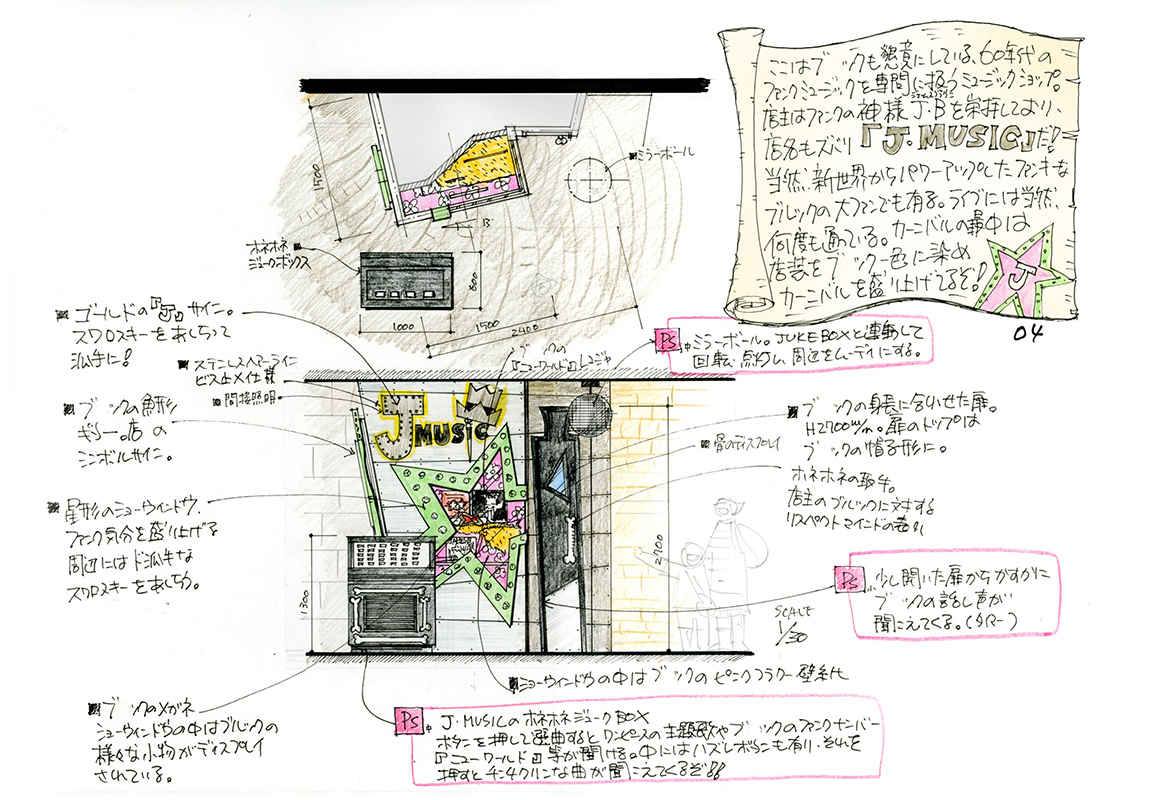 ここはブルックも懇意にしている、60年代の
ファンクミュージックを専門に扱うミュージックショップ。
店主はファンクの神様J・Bを崇拝しており、
店名もズバリ『J.MUSIC』だ!
当然、新世界からパワーアップしたファンキーな
ブルックの大ファンでも有る。ライブには当然、
何度も通っている。カーニバルの最中は
店装をブルック一色に染め
カーニバルを盛り上げてるぞ!
J
04
ミラーボール
1500
B'
ホネホネ
ジュークボックス
800
1000
1500
2400
PS
ミラーボール。JUKE BOXと連動して
回転・点灯し、周辺をムーディにする。
ゴールドの『J』サイン。
スワロスキーをあしらって
派手に!
ステンレスヘアーライン
ビス止メ仕様
間接照明。
ブルックの
『ニューワールド』
ブルックの魚形
ギター。店の
シンボルサイン。
J MUSIC
骨のディスプレイ
ブルックの身長に合わせた扉。
H2700m/m。扉のトップは
ブルックの帽子形に。
ホネホネの取手。
店主のブルックに対する
リスペクトマインドの表れ
星形のショーウィンドウ、
ファンク気分を盛り上げる
周辺にはド派手な
スワロスキーをあしらう。
1300
2700
SCALE
1/30
PS
少し開いた扉からかすかに
ブルックの話し声が
聞こえてくる。(タイマー)
ショーウィンドウの中はブルックのピンクフラワー壁紙
ブルックのメガネ
ショーウィンドウの中はブルックの
様々な小物がディスプレイ
されている。
PS
J・MUSICのホネホネジュークBOX
ボタンを押して選曲するとワンピースの主題歌やブルックのファンクナンバー
『ニューワールド』等が聞ける。中にはハズレボタンも有り、それを
押すとチンチクリンな曲が聞こえてくるぞ!!